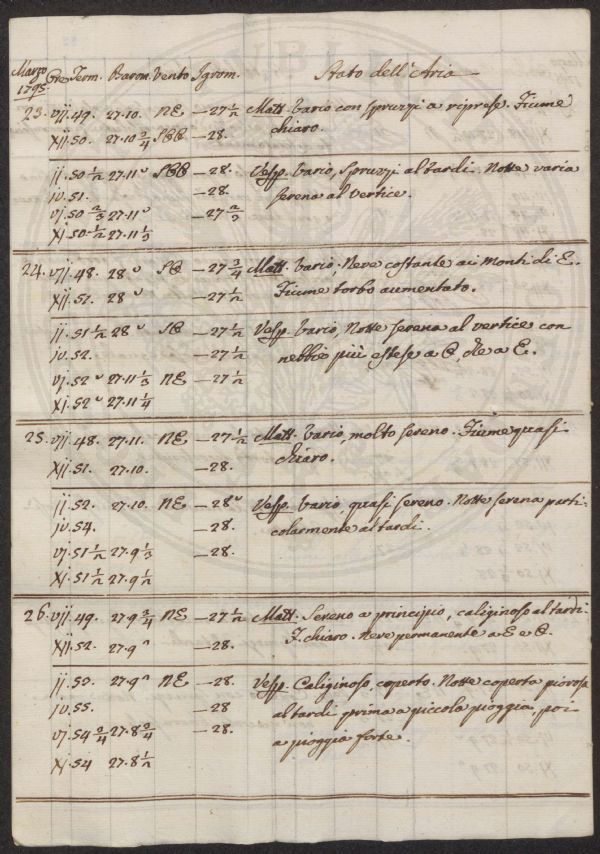 Marzo 1795. Ore Term. Barom. Vento Igrom. Stato dell'Aria
23. vij. 49. 27.10. NE —27 1/2 Matt. Vario con spruzzi a riprese. Fiume
xij. 50. 27.10 3/4 —28. chiaro.
ij. 50 1/2 27.11 —28. Vesp. Vario, spruzzi al tardi. Notte varia
iv. 51. —28. serena al vertice.
vj. 50 2/3 27.11 —27 2/3
xj. 50 1/2 27.11 1/3
24. vij. 48. 28 —27 3/4 Matt. Vario. Neve costante ai monti di E.
xij. 52. 28 —27 1/2 Fiume torbo aumentato.
ij. 51 1/2 28 —27 1/2 Vesp. Vario, Notte serena al vertice con
iv. 52. —27 1/2 nebbie più estese a E.
vj. 52 27.11 1/3 NE —27 1/2
xj. 52 27.11 1/4
25. vij. 48. 27.11. NE —27 1/2 Matt. Vario, molto sereno. Fiume quasi
xij. 51. 27.10. —28. chiaro.
ij. 52. 27.10. NE —28 Vesp. Vario, quasi sereno. Notte serena parti-
iv. 54. —28. colarmente al tardi.
vj. 51 1/2 27.9 1/3 —28.
xj. 51 1/2 27.9 1/2
26. vij. 49. 27.9 3/4 NE —27 1/2 Matt. Sereno a principio, caliginoso al tardi.
xij. 52. 27.9 —28. F. chiaro. Neve permanente a E e
ij. 53. 27.9 NE —28. Vesp. Caliginoso, coperto. Notte coperta piovosa
iv. 55. —28 al tardi prima a piccola pioggia, poi
vj. 54 3/4 27.8 3/4 —28. a pioggia forte.
xj. 54 27.8 1/2